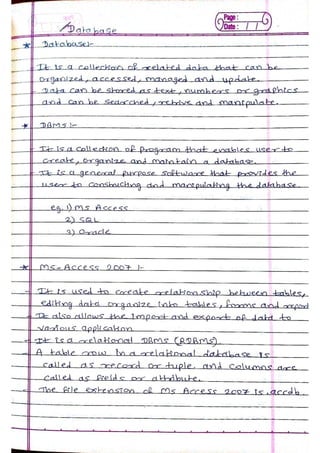 Page:
Date: / /
Database
* Database:-
It is a collection of related data that can be
organized, accessed, managed and update.
Data can be stored as text, numbers or graphics
and can be searched, retrive and manipulate.
* DBMS:-
It is a collection of program that enables user to
create, organize and maintain a database.
It is a general purpose software that provides the
user to constructing and manipulating the database.
eg. 1) MS Access
2) SQL
3) Oracle
* MS-Access 2007 :-
- It is used to create relationship between tables,
editing data organize into tables, forms and report
- It also allows the import and export of data to
various application
- It is a relational DBMS (RDBMS)
- A table row in a relational database is
called as record or tuple, and columns are
called as fields or attribute.
- The file extension of MS Access 2007 is .accdb.